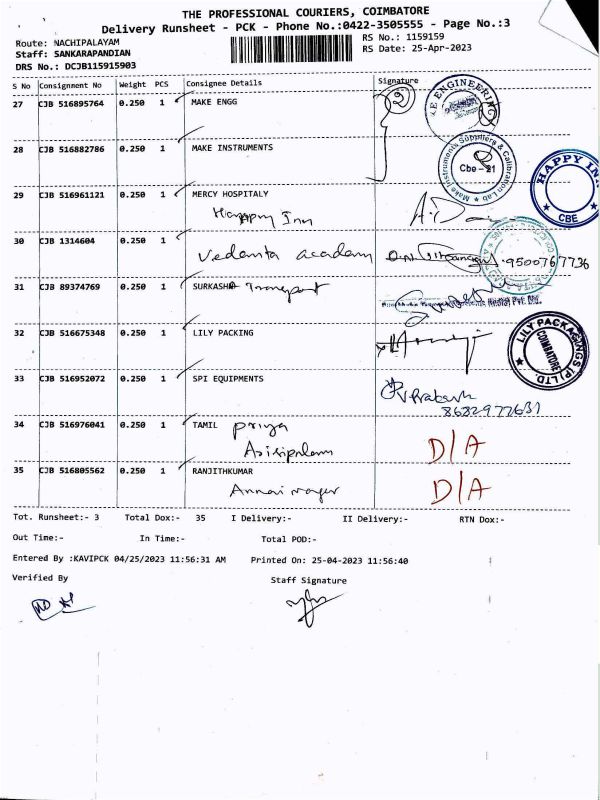 THE PROFESSIONAL COURIERS, COIMBATORE
Delivery Runsheet - PCK - Phone No.:0422-3505555 - Page No.:3
Route: NACHIPALAYAM
RS No.: 1159159
Staff: SANKARAPANDIAN
RS Date: 25-Apr-2023
DRS No.: DCJB115915903
S No Consignment No Weight PCS Consignee Details Signature
27 CJB 516895764 0.250 1 MAKE ENGG
2
28 CJB 516882786 0.250 1 MAKE INSTRUMENTS
Make Instruments Suppliers & Calibration Lab
Cbe - 21
29 CJB 516961121 0.250 1 MERCY HOSPITALY
Happy Inn
HAPPY INN
CBE
30 CJB 1314604 0.250 1
Vedanta academy
9500767736
31 CJB 89374769 0.250 1 SURKASHA Transport
32 CJB 516675348 0.250 1 LILY PACKING
LILY PACKAGINGS (P) LTD.
COIMBATORE
33 CJB 516952072 0.250 1 SPI EQUIPMENTS
Prabash
8682977631
34 CJB 516976041 0.250 1 TAMIL Priya
D/A
35 CJB 516805562 0.250 1 RANJITHKUMAR
Annai nagar
D/A
Tot. Runsheet:- 3 Total Dox:- 35 I Delivery:- II Delivery:- RTN Dox:-
Out Time:- In Time:- Total POD:-
Entered By :KAVIPCK 04/25/2023 11:56:31 AM Printed On: 25-04-2023 11:56:40
Verified By
Staff Signature